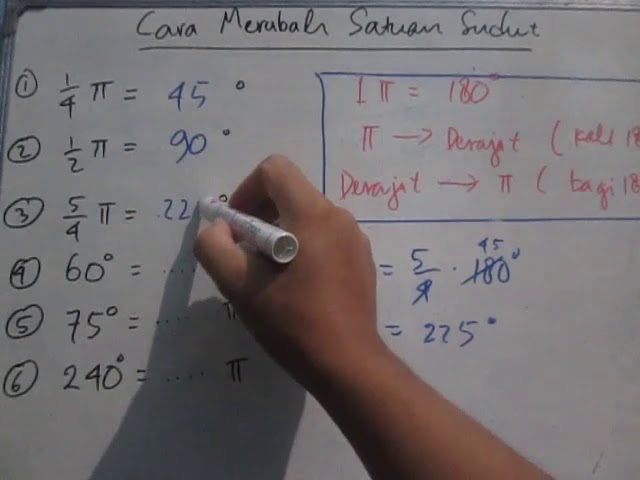 Cara Merubah Satuan Sudut
① 1/4 π = 45 °
② 1/2 π = 90 °
③ 5/4 π = 22 °
④ 60° = ....
⑤ 75° = .... π
⑥ 240° = .... π
1 π = 180°
π → Derajat ( kali 18
Derajat → π ( bagi 18
= 5/4 . 180° 45
= 225°